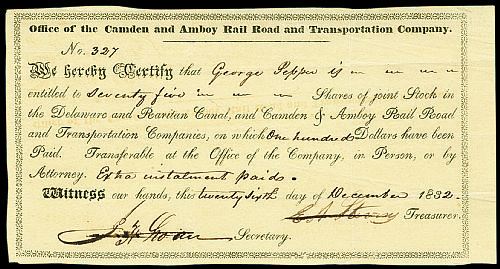 Office of the Camden and Amboy Rail Road and Transportation Company.
No. 327
We hereby Certify that George Pepper is
entitled to Seventy five Shares of joint Stock in
the Delaware and Raritan Canal, and Camden & Amboy Rail Road
and Transportation Companies, on which One hundred Dollars have been
Paid. Transferable at the Office of the Company, in Person, or by
Attorney. Extra instalment paid.
Witness our hands, this twenty sixth day of December 1832.
Treasurer.
Secretary.